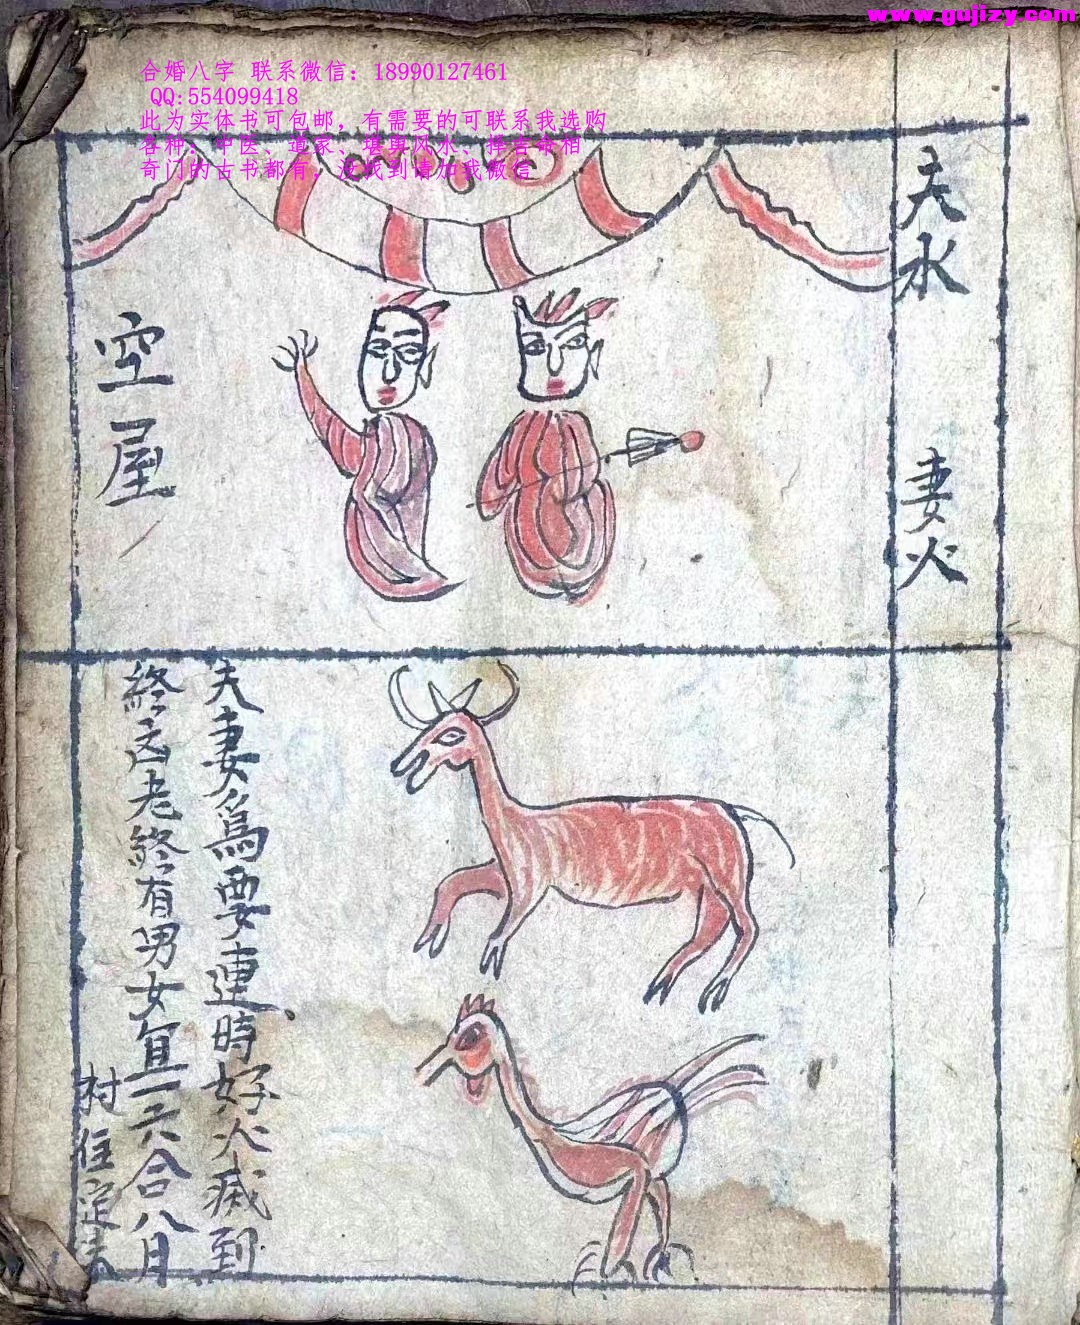 www.gujizy.com
合婚八字 联系微信：18990127461
QQ:554099418
此为实体书可包邮，有需要的可联系我选购
各种、中医、道家、堪舆风水、择吉命相
奇门的古书都有，没找到请加我微信
夫水 妻火
空屋
夫妻為要連時好火滅到
終凶老終有男女宜一六合八月
村住定